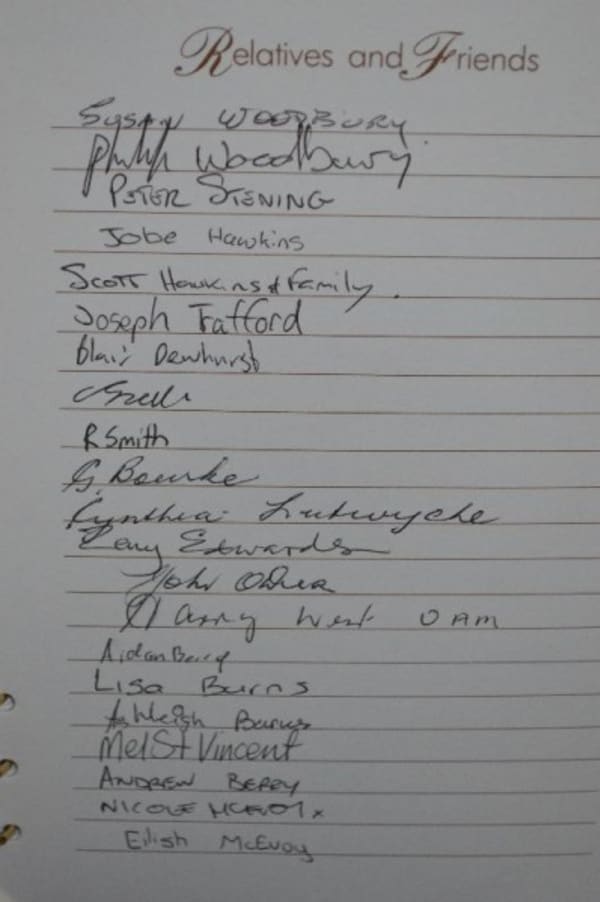 Relatives and Friends
Susan WOODBURY
Philip Woodbury
PETER STENING
Jobe Hawkins
SCOTT Hawkins & Family.
Joseph Trafford
Blair Dewhurst
R Smith
G. Bourke
Cynthia Lutwyche
Edwards
John
Harry West OAM
Aidan Berry
Lisa Burns
Ashleigh Burns
Mel St Vincent
ANDREW BERRY
NICOLE MCEVOY x
Eilish McEvoy